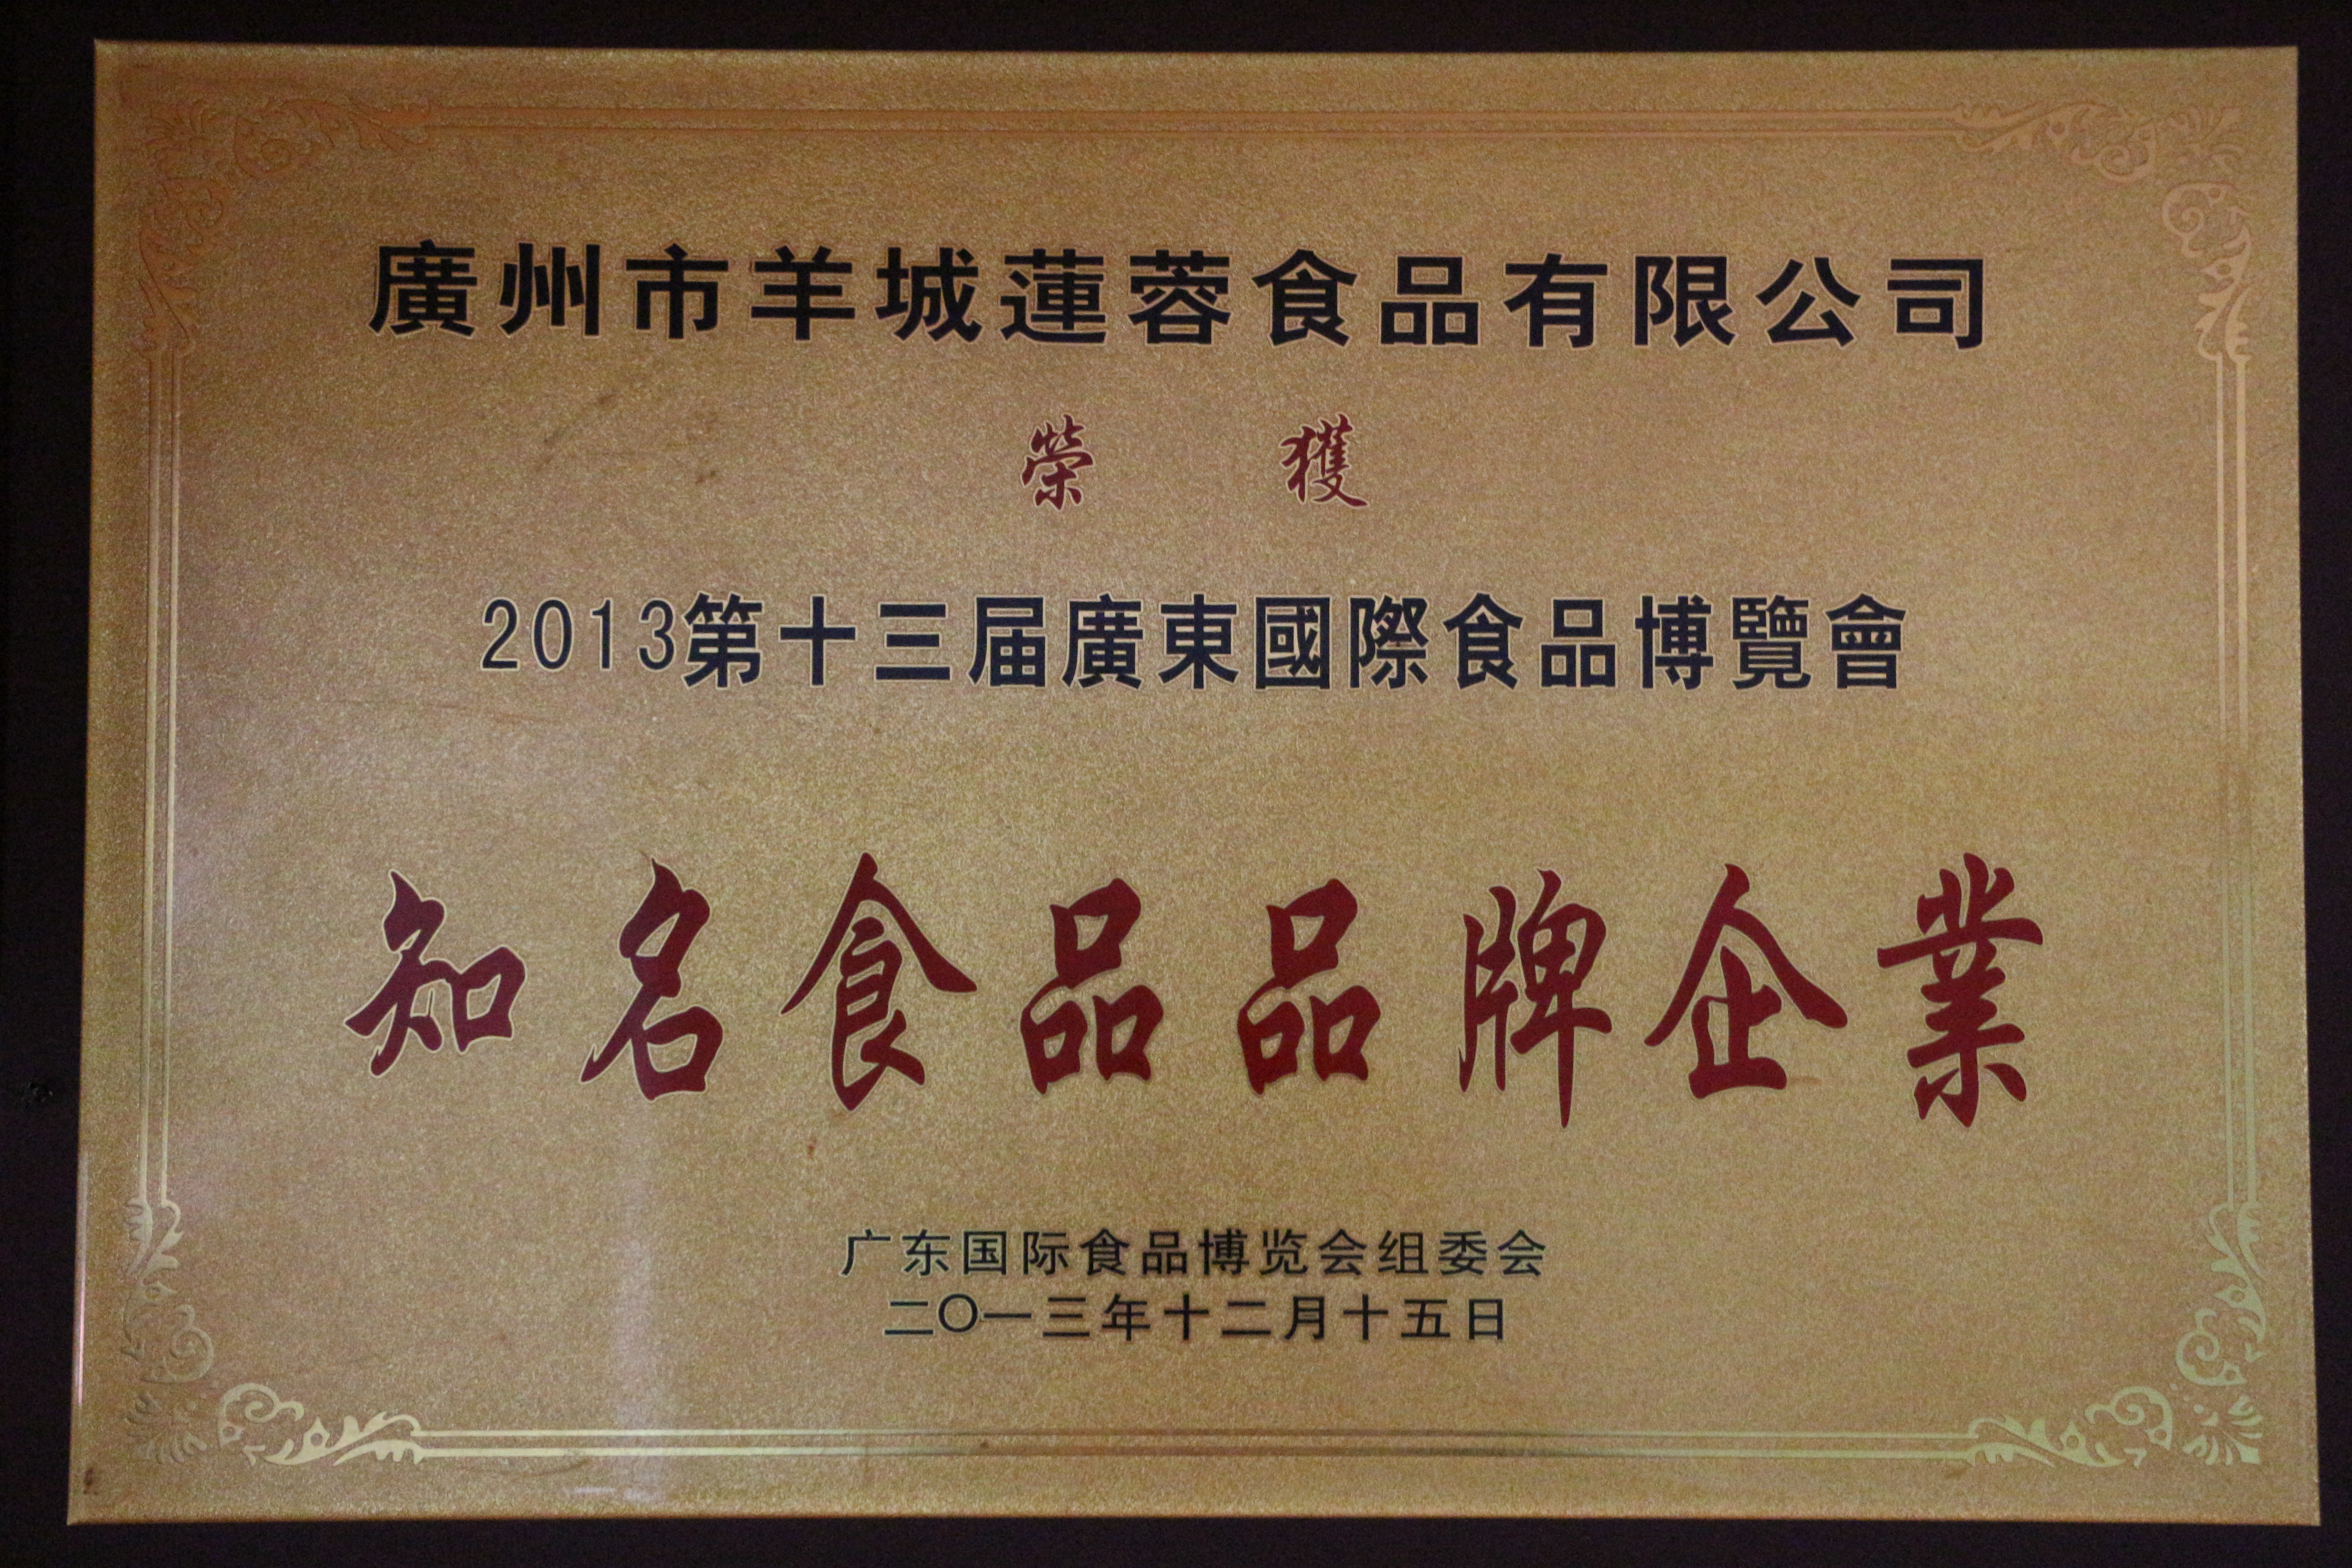 廣州市羊城蓮蓉食品有限公司
榮獲
2013第十三届廣東國際食品博覽會
知名食品品牌企業
广东国际食品博览会组委会
二〇一三年十二月十五日